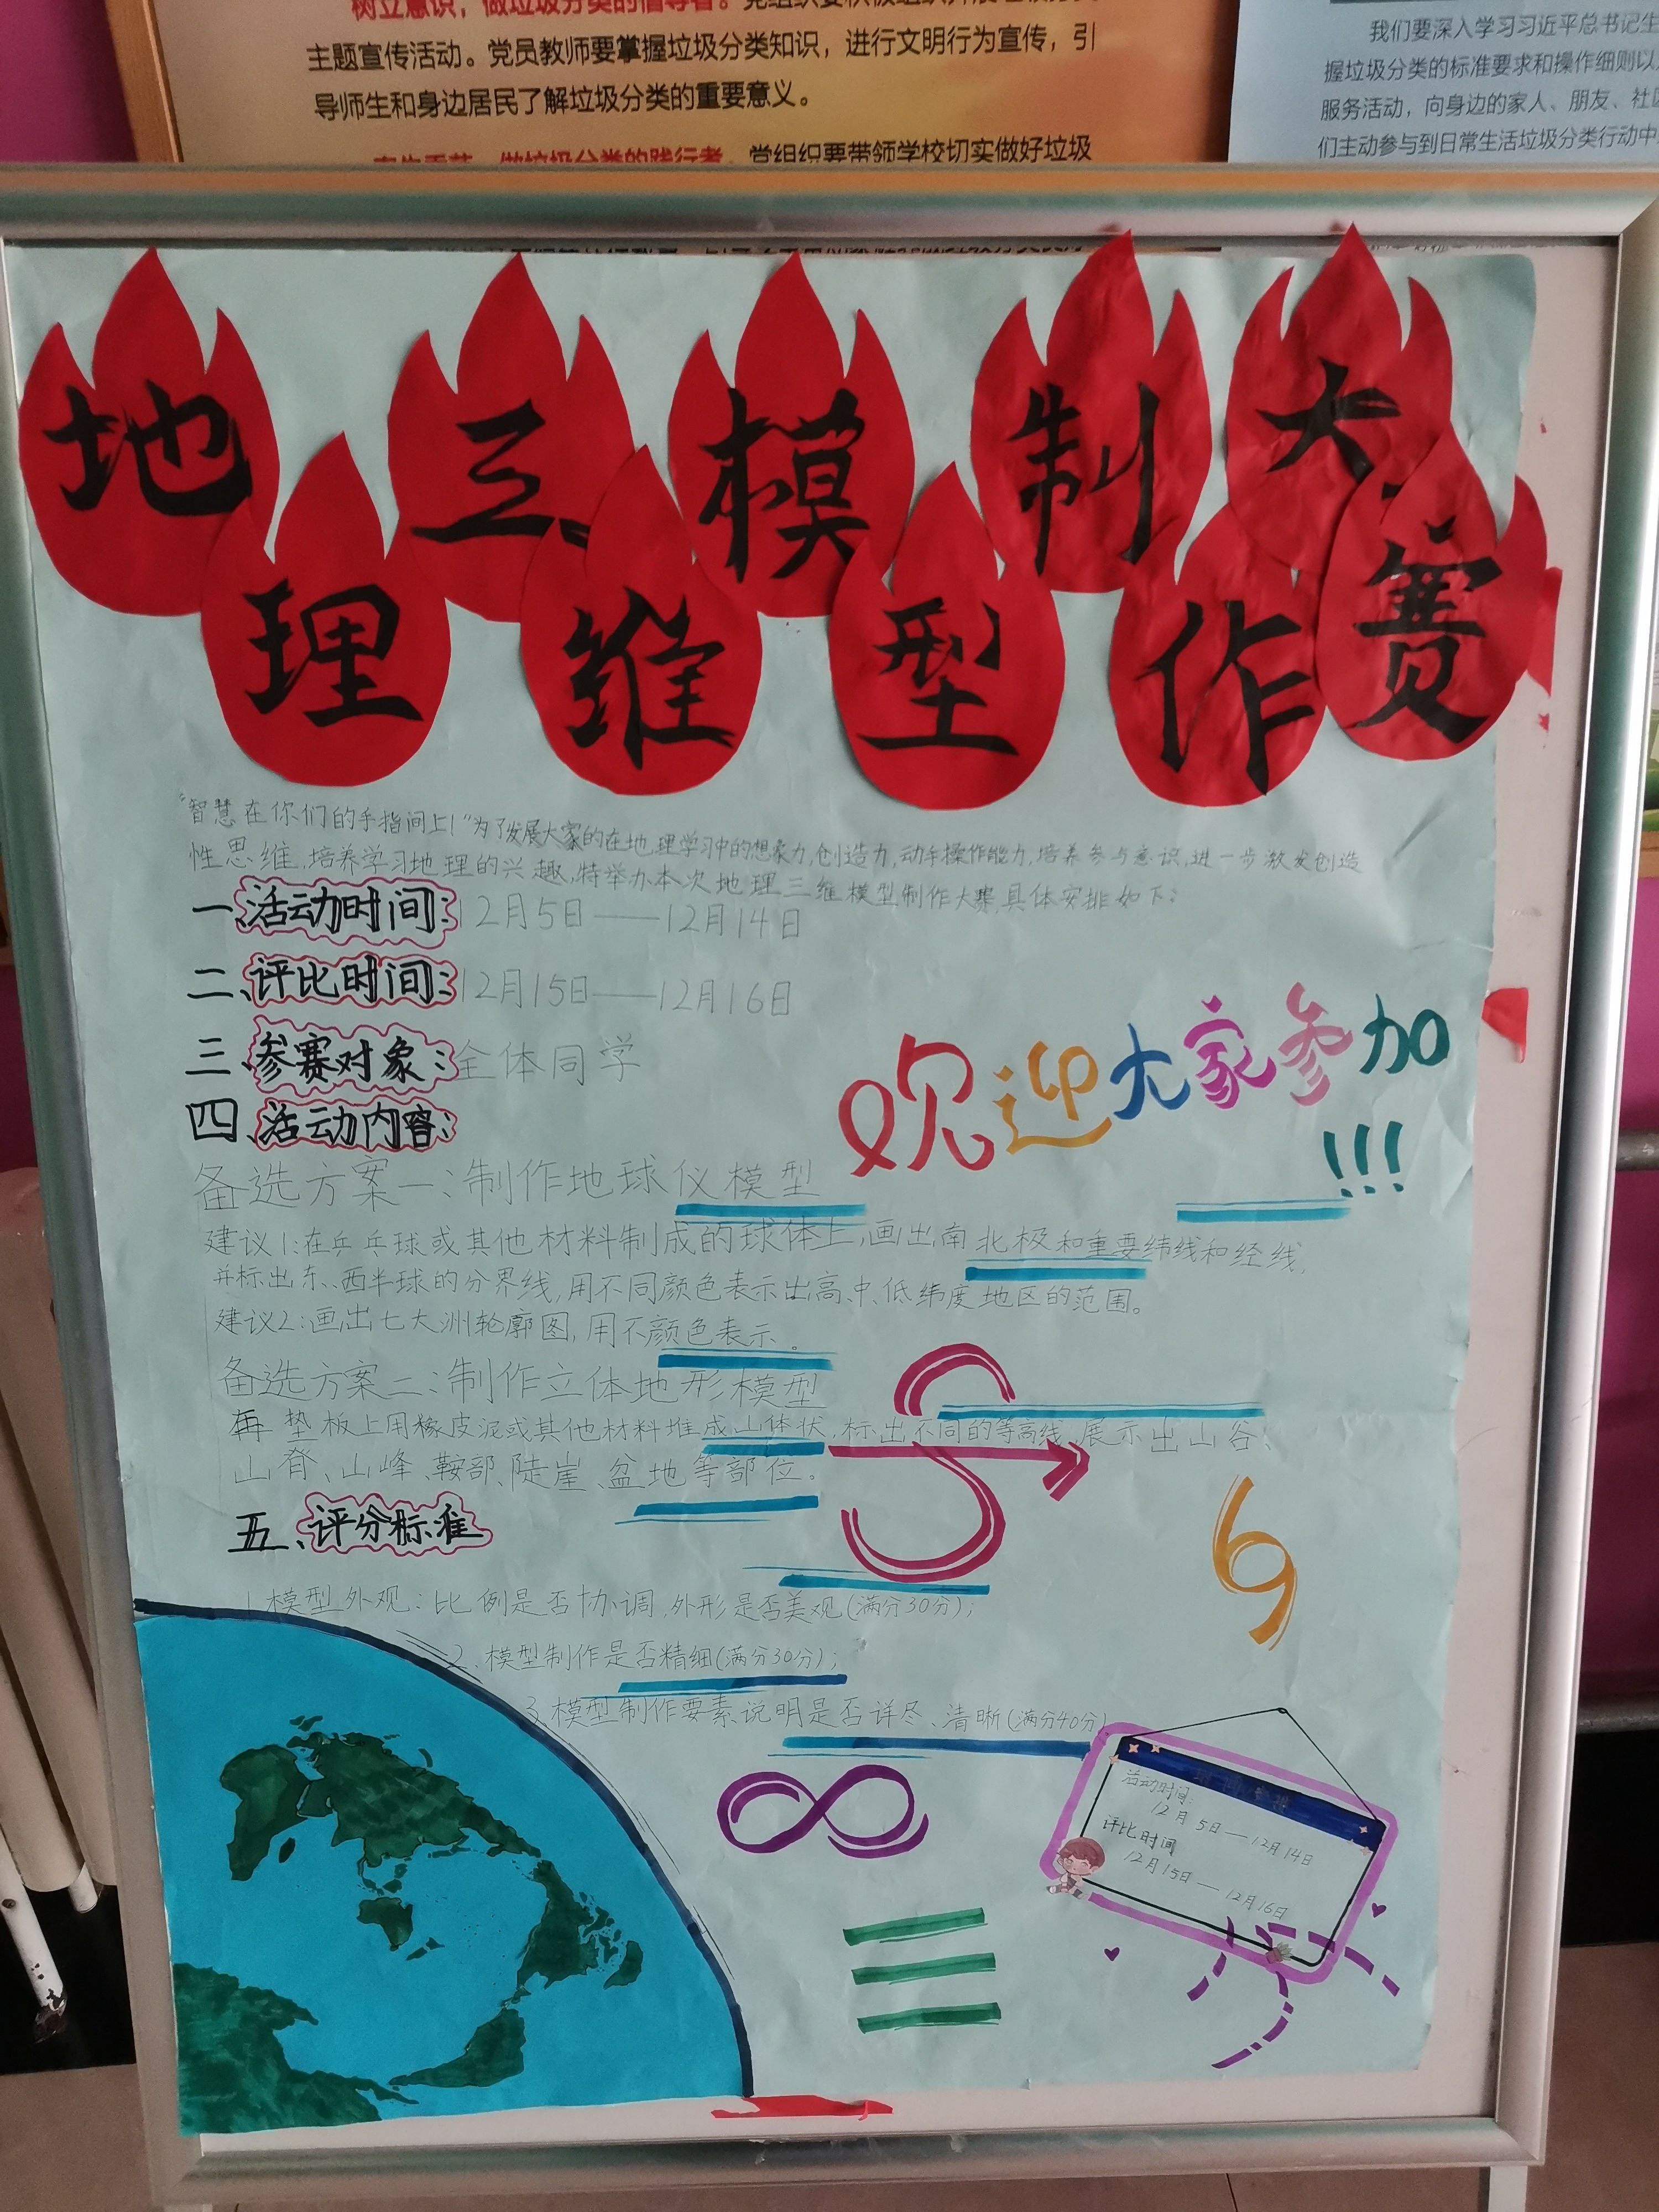 树立意识，做垃圾分类的倡导者。
主题宣传活动。党员教师要掌握垃圾分类知识，进行文明行为宣传，引
导师生和身边居民了解垃圾分类的重要意义。
做垃圾分类的践行者。党组织要带领学校切实做好垃圾
我们要深入学习习近平总书记生
握垃圾分类的标准要求和操作细则以
服务活动，向身边的家人、朋友、社区
们主动参与到日常生活垃圾分类行动中
地理三维模型制作大赛
“智慧在你们的手指间上！”为了发展大家的在地理学习中的想象力,创造力,动手操作能力,培养参与意识,进一步激发创造
性思维,培养学习地理的兴趣,特举办本次地理三维模型制作大赛,具体安排如下:
一、活动时间:12月5日——12月14日
二、评比时间:12月15日——12月16日
三、参赛对象:全体同学
四、活动内容:
欢迎大家参加
!!!
备选方案一:制作地球仪模型
建议1:在乒乓球或其他材料制成的球体上,画出南北极和重要纬线和经线,
并标出东、西半球的分界线,用不同颜色表示出高、中、低纬度地区的范围。
建议2:画出七大洲轮廓图,用不颜色表示。
备选方案二:制作立体地形模型
再垫板上用橡皮泥或其他材料堆成山体状,标出不同的等高线,展示出山谷、
山脊、山峰、鞍部、陡崖、盆地等部位。
五、评分标准
1.模型外观:比例是否协调,外形是否美观(满分30分);
2.模型制作是否精细(满分30分);
3.模型制作要素说明是否详尽、清晰(满分40分)
活动时间:
12月5日—12月14日
评比时间
12月15日—12月16日